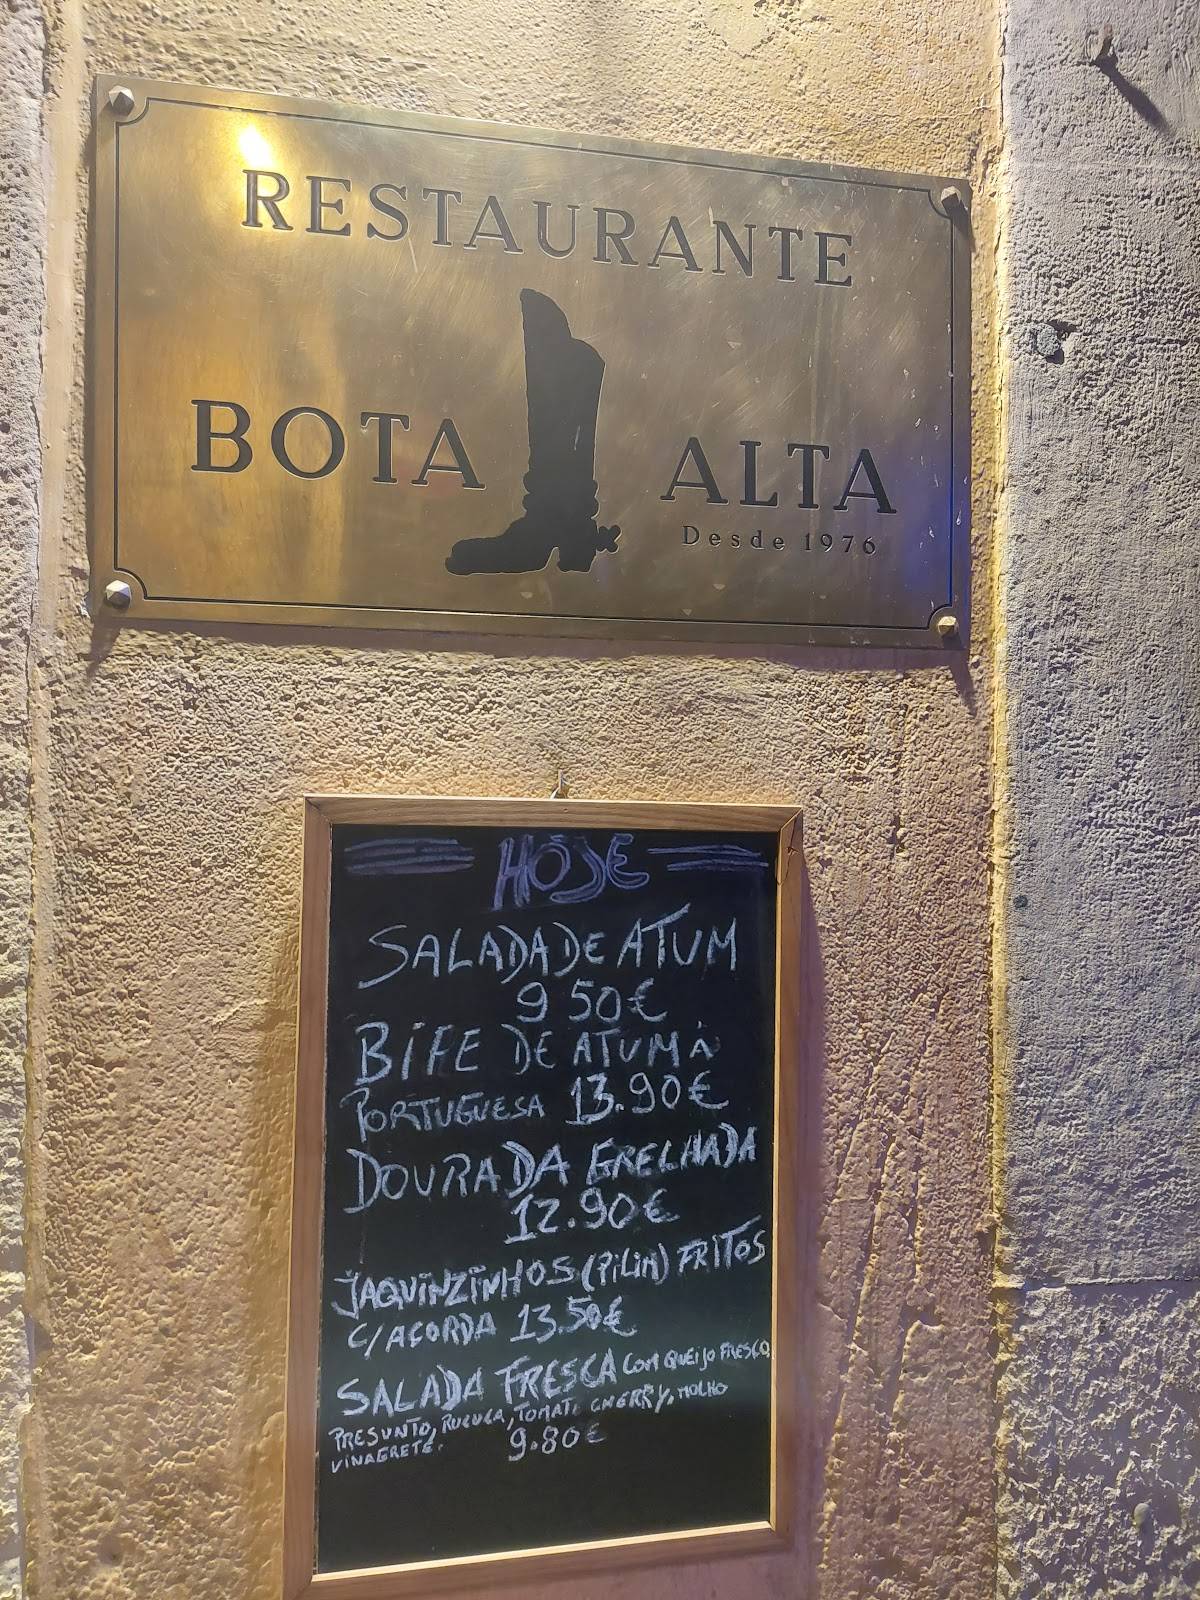 RESTAURANTE
BOTA ALTA
Desde 1976
HOJE
SALADA DE ATUM
9 50€
BIFE DE ATUM À
PORTUGUESA 13.90€
DOURADA GRELHADA
12.90€
JAQUINZINHOS (PILIM) FRITOS
C/ AÇORDA 13.50€
SALADA FRESCA COM QUEIJO FRESCO,
PRESUNTO, RUCULA, TOMATE CHERRY, MOLHO
VINAGRETE. 9.80€